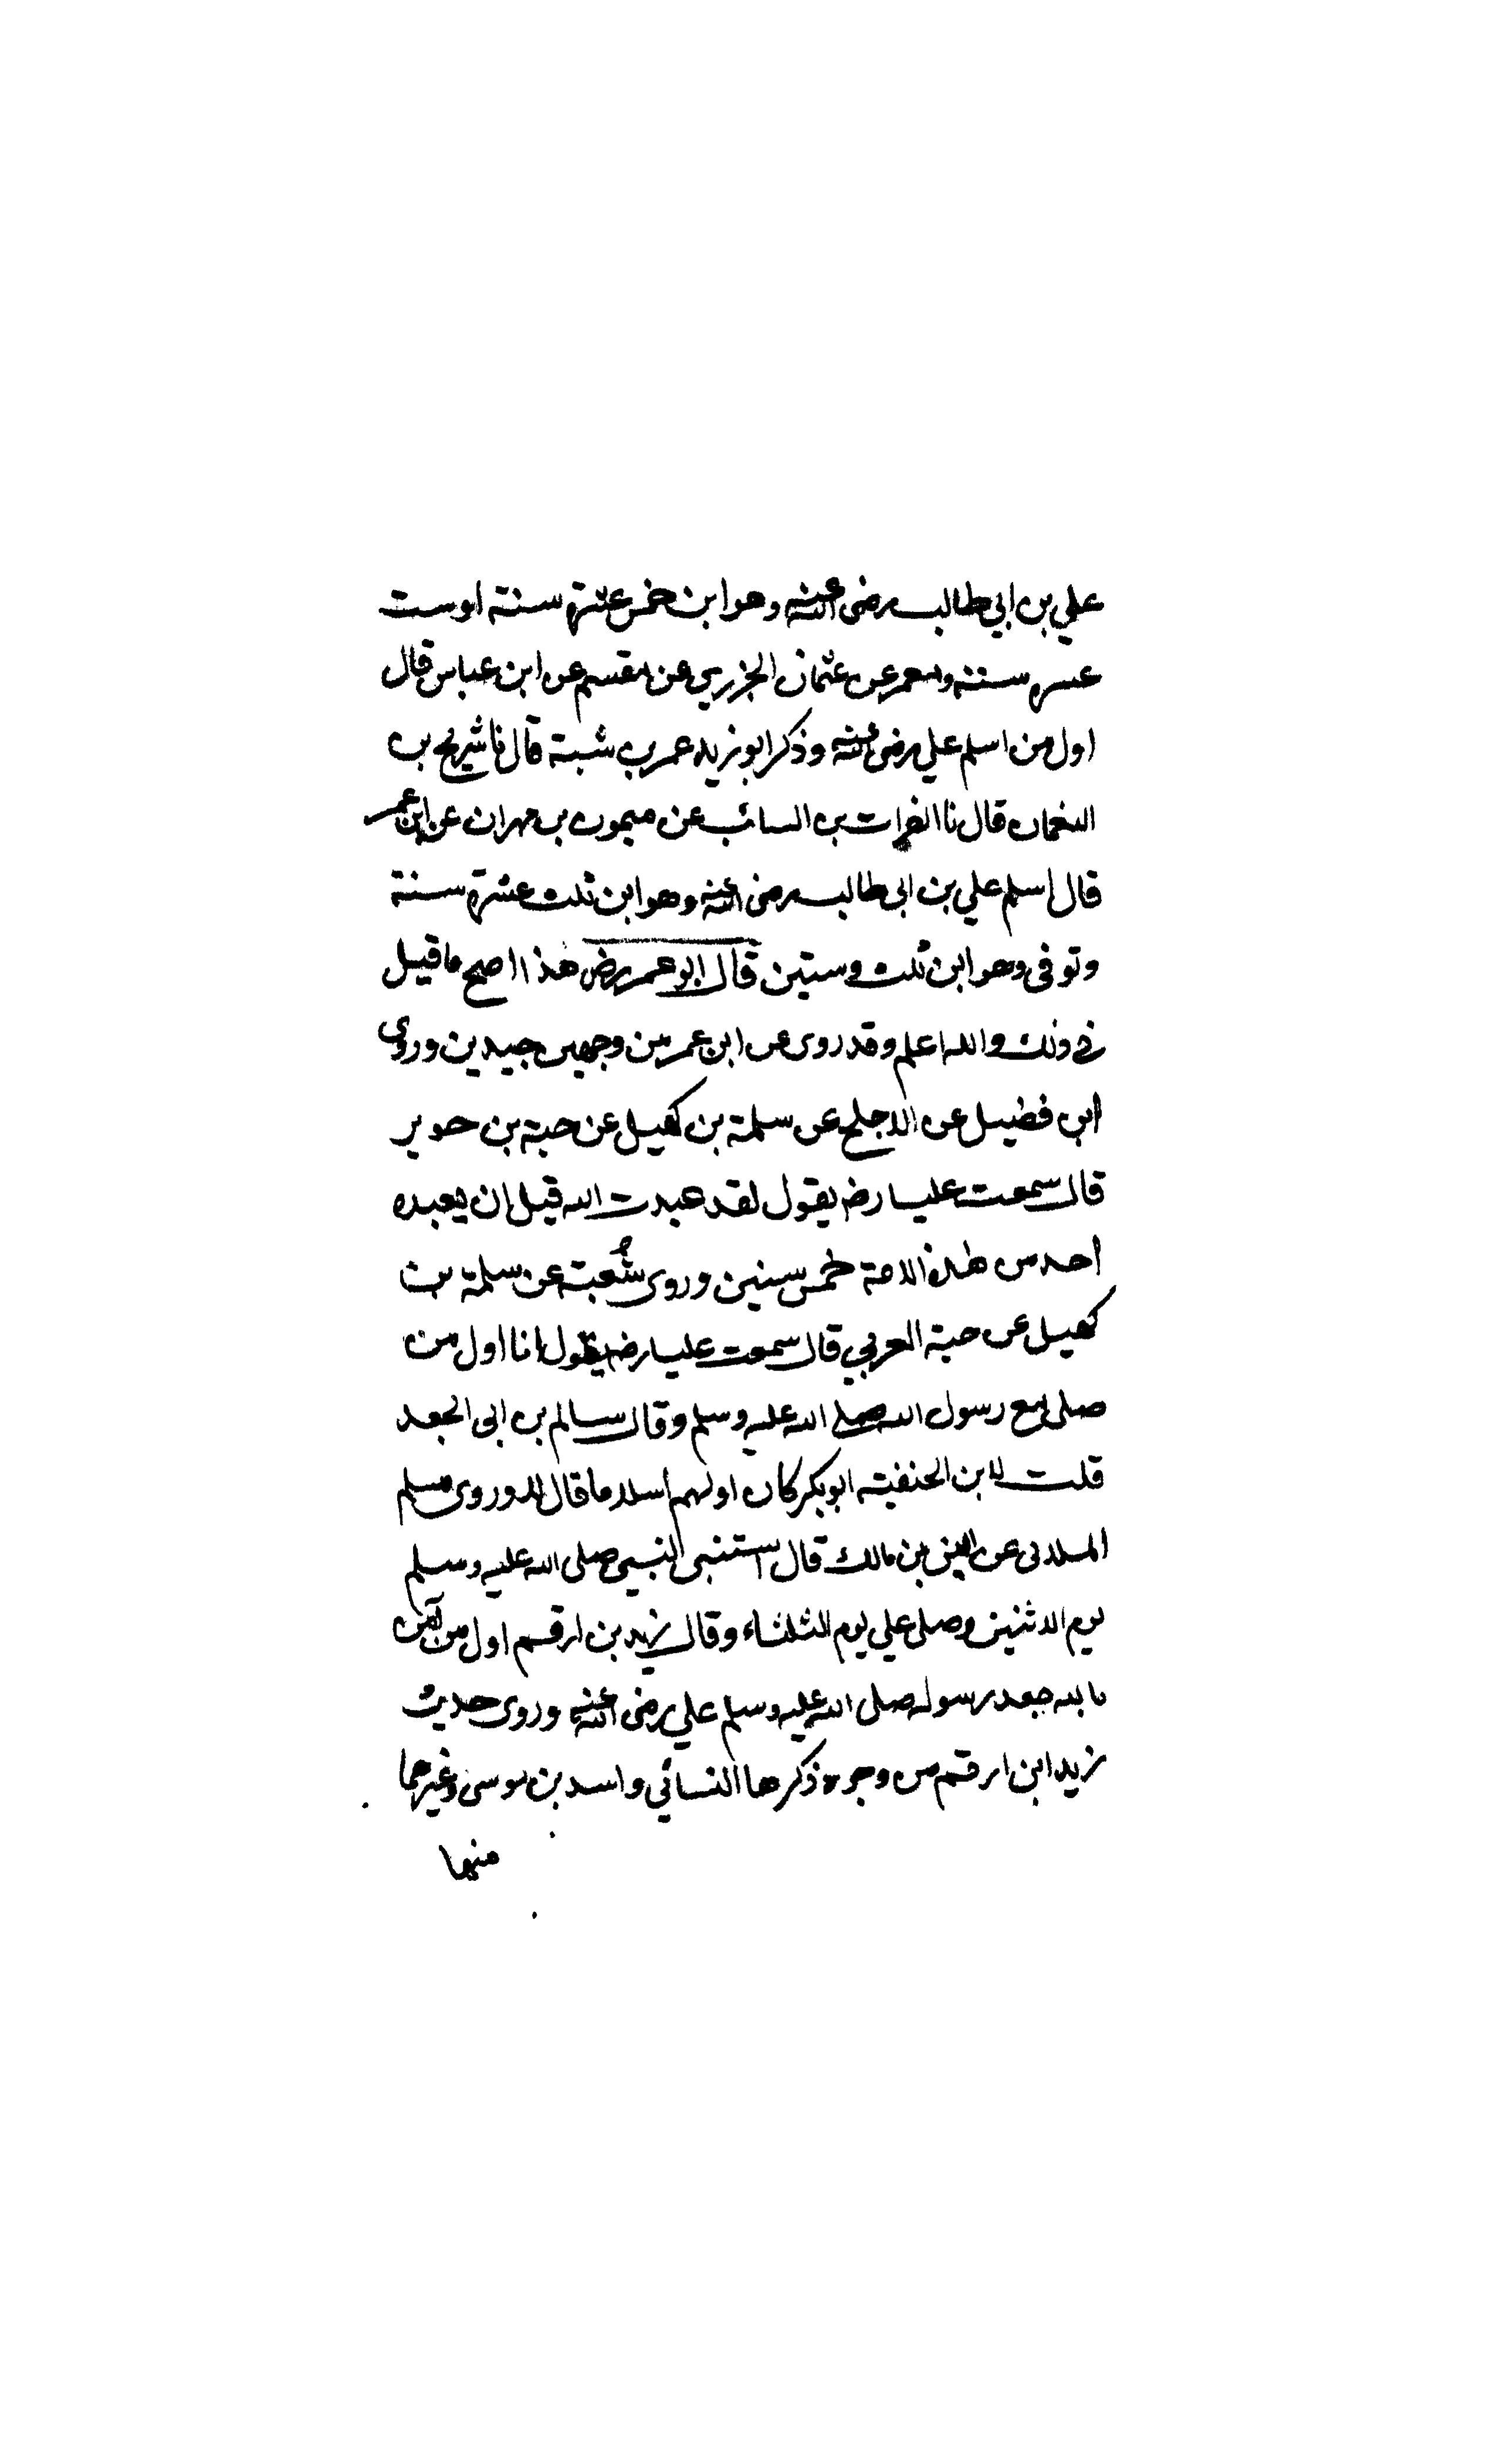 علي بن ابي طالب رضى الله عنه وهو ابن خمس عشرة سنة او ست
عسره سنة ومعمر عن عثمان الجزري عن مقسم عن ابن عباس قال
اول من اسلم علي رضى الله عنه وذكر ابو زيد عمر بن شبة قال نا شريح بن
النعمان قال نا الفرات بن السائب عن ميمون بن مهران عن ابن عمر
قال اسلم علي بن ابى طالب رضى الله عنه وهو ابن ثلث عشرة سنة
وتوفى وهو ابن ثلث وستين قال ابو عمر رض هذا اصح ما قيل
فى ذلك والله اعلم وقد روى عن ابن عمر من وجهين جيدين وروى
ابن فضيل عن الاجلح عن سلمة بن كهيل عن حبة بن حوير
قال سمعت عليا رض يقول لقد عبدت الله قبل ان يعبده
احد من هذه الامة خمس سنين وروى شُعبة عن سلمة بن
كهيل عن حبة العربي قال سمعت عليا رض يقول انا اول من
صلى مع رسول الله صلى الله عليه وسلم وقال سالم بن ابى الجعد
قلت لابن الحنفية ابو بكر كان اولهم اسلاما قال لا وروى مسلم
الملائى عن انس بن مالك قال استنبى النبي صلى الله عليه وسلم
يوم الاثنين وصلى علي يوم الثلثاء وقال زيد بن ارقم اول من آمن
بالله بعد رسوله صلى الله عليه وسلم علي رضى الله عنه وروى حديث
زيد ابن ارقم من وجوه ذكرها النسائي واسد بن موسى وغيرهما
منها